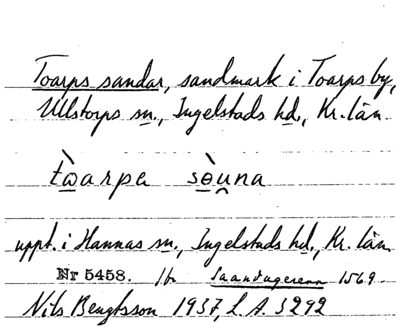 Toarps sandar, sandmark i Toarps by,
Ullstorps sn., Ingelstads hd., Kr. län.
tὼarpa sòu̯na
uppt. i Hannas sn., Ingelstads hd., Kr. län.
Nr 5458. 1569
Nils Bengtsson 1937, L.A. 3292